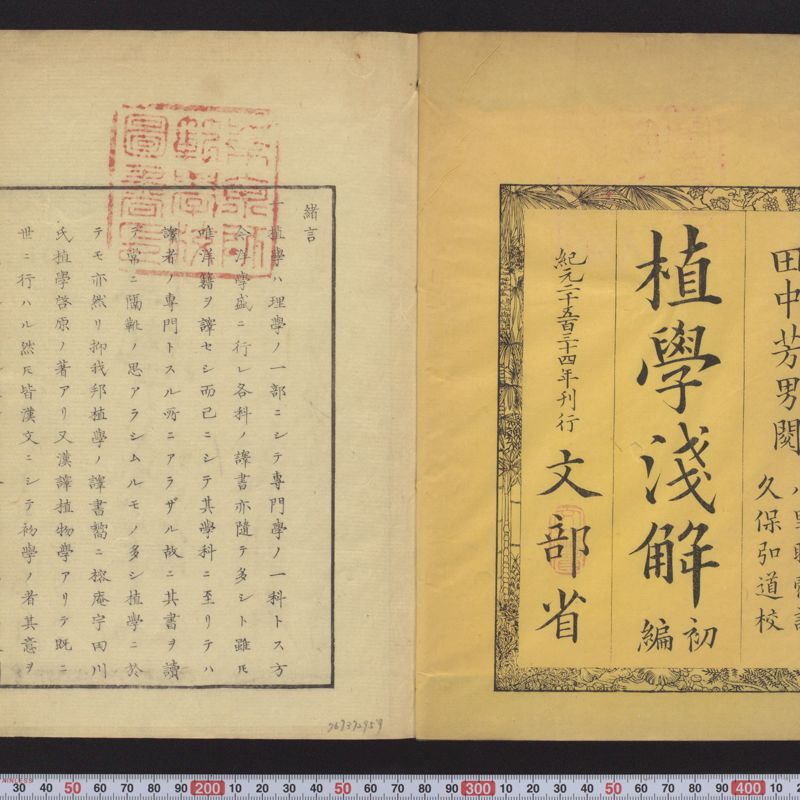 田中芳男閲
久保弘道校
植學淺解
初編
紀元二千五百三十四年刊行
文部省
緒言
一植學ハ理學ノ一部ニシテ專門學ノ一科トス方
今洋學盛ニ行レ各科ノ譯書亦隨テ多シト雖𪜈
唯洋籍ヲ譯セシ而已ニシテ其學科ニ至リテハ
譯者ノ專門トスル所ニアラザル故ニ其書ヲ讀
テ常ニ隔靴ノ思アラシムルモノ多シ植學ニ於
テモ亦然リ抑我邦植學ノ譯書嚮ニ榕庵宇田川
氏植學啓原ノ著アリ又漢譯植物學アリテ既ニ
世ニ行ハル然𪜈皆漢文ニシテ初學ノ者其意ヲ
30 40 50 60 70 80 90 200 10 20 30 40 50 60 70 80 90 300 10 20 30 40 50 60 70 80 90 400 10